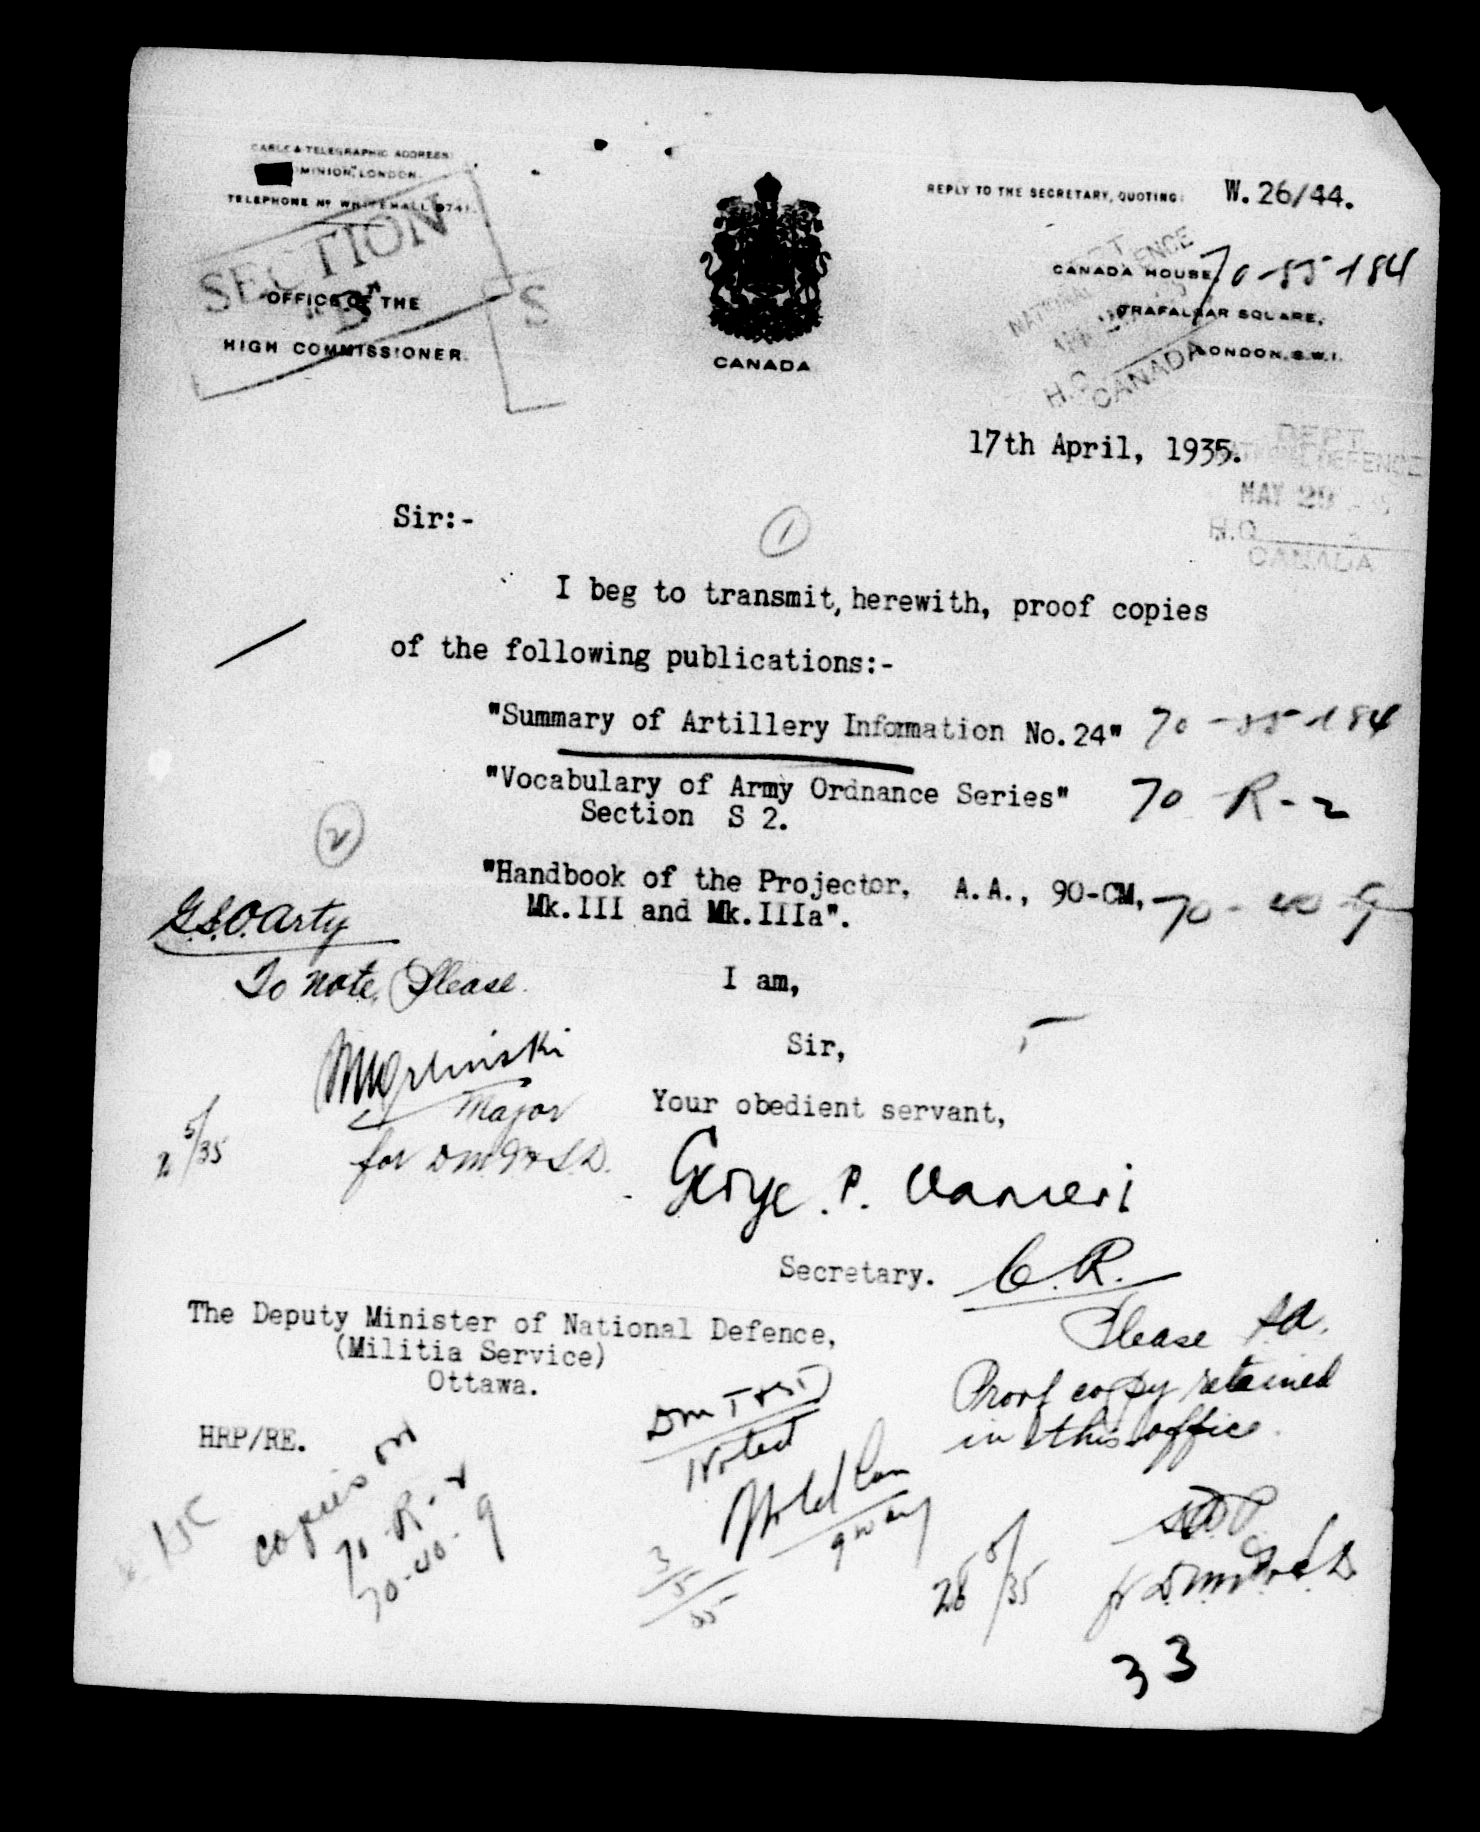 CABLE & TELEGRAPHIC ADDRESS:
MINION, LONDON.
TELEPHONE No WHITEHALL 9741.
SECTION
"D"
S
OFFICE OF THE
HIGH COMMISSIONER.
CANADA
REPLY TO THE SECRETARY, QUOTING: W.26/44.
70-55-184
CANADA HOUSE,
TRAFALGAR SQUARE,
LONDON, S.W.1.
NATIONAL DEFENCE
H.Q.
CANADA
17th April, 1935.
DEPT
NATIONAL DEFENCE
MAY 29
H.Q.
CANADA
Sir:-
1
I beg to transmit, herewith, proof copies
of the following publications:-
"Summary of Artillery Information No.24" 70-55-184
"Vocabulary of Army Ordnance Series" 70 R-2
Section S 2.
2
"Handbook of the Projector, A.A., 90-CM, 70-40-9
Mk.III and Mk.IIIa".
G.S.O. Arty
To note, Please.
I am,
Sir,
Major
Your obedient servant,
2/5/35
for D.M.T. & S.D.
George P. Vanier
Secretary.
C.R.
Please P.A.
The Deputy Minister of National Defence,
(Militia Service)
Ottawa.
Proof copy retained
in this office.
HRP/RE.
DMT & SD
Noted
copies on
70-R-2
70-40-9
3/5/35
28/5/35
for D.M.T. & S.D.
33